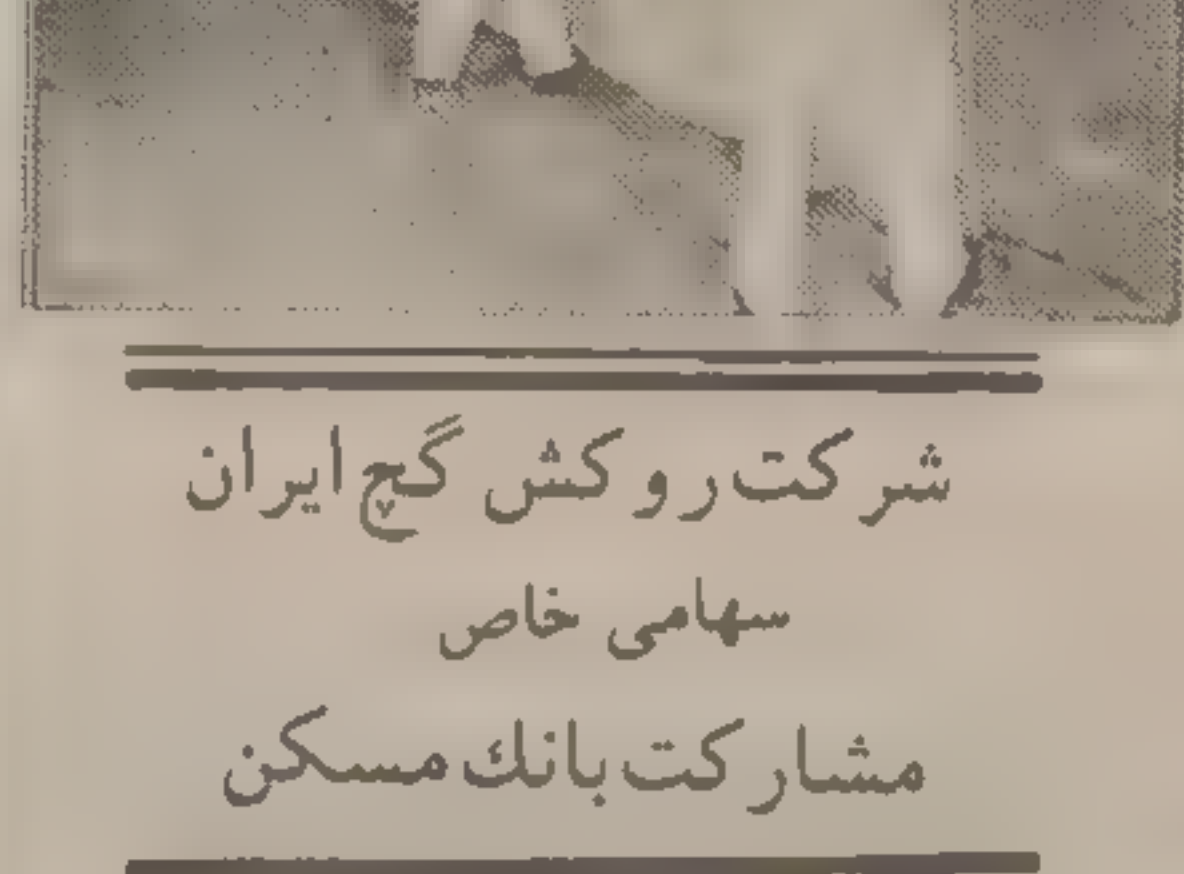 شرکت روکش گچ ایران
سهامی خاص
مشارکت بانك مسکن